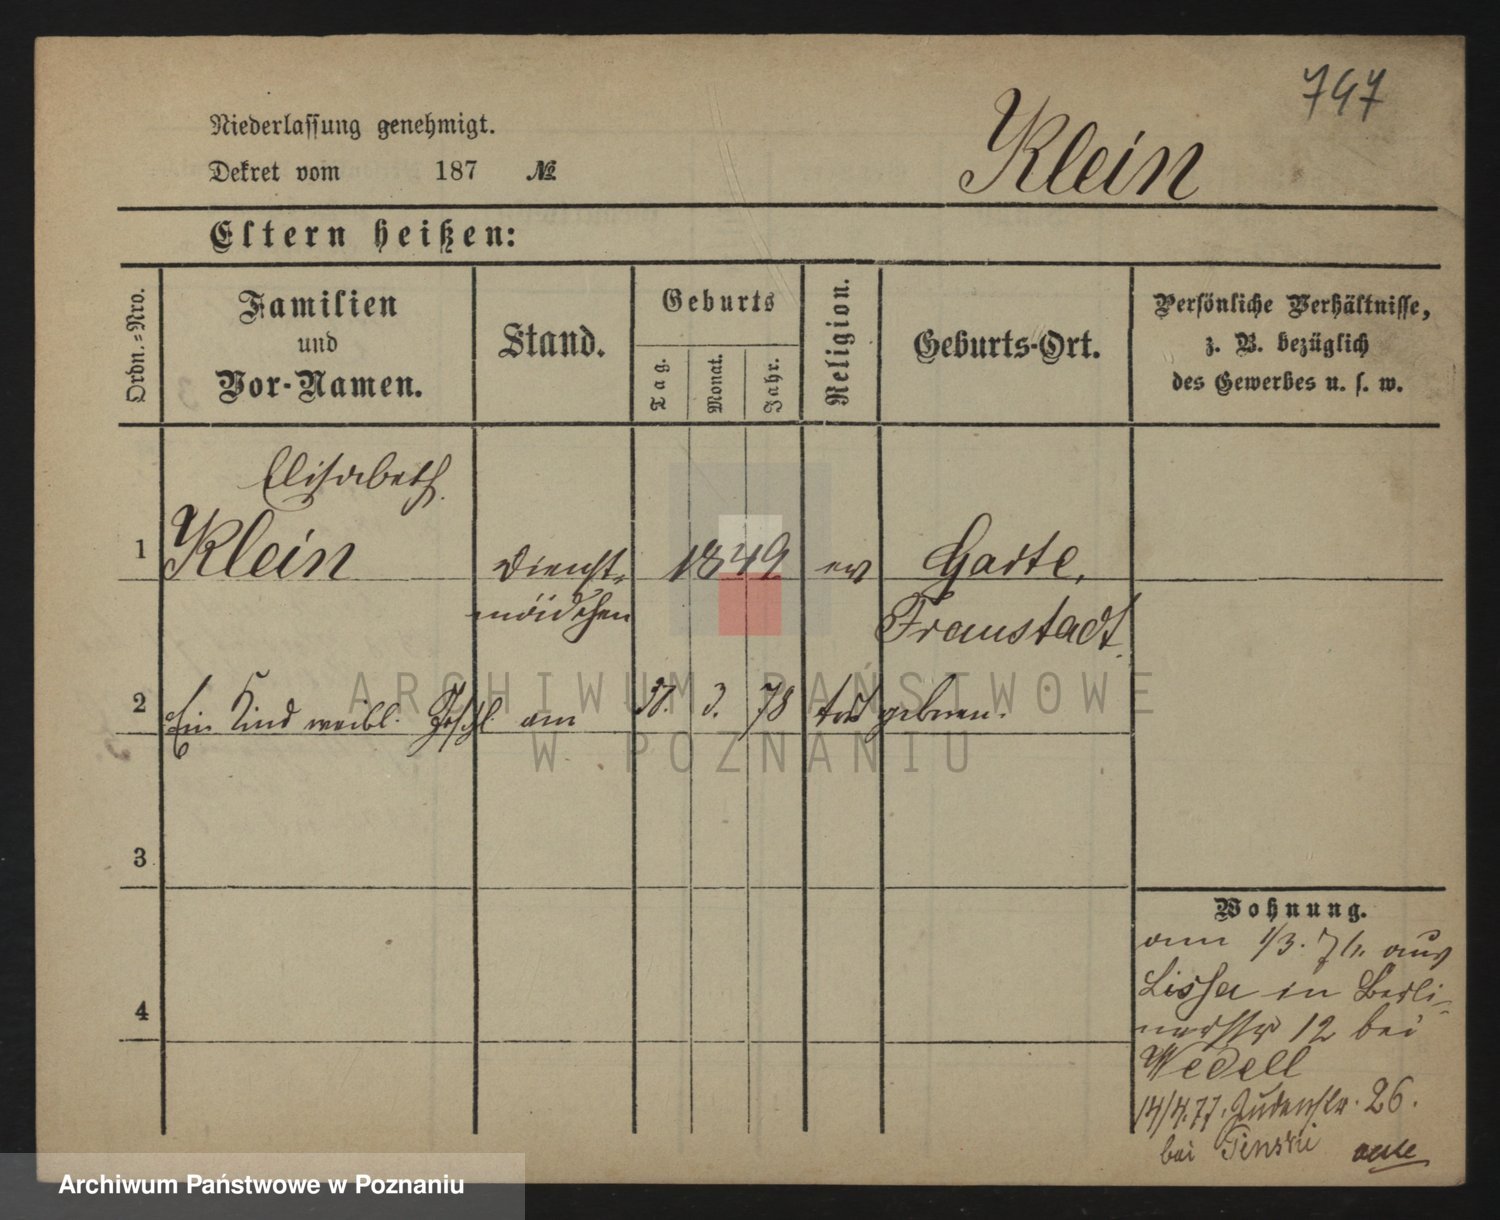 747
Niederlassung genehmigt.
Klein
Dekret vom 187 №
Eltern heißen:
Ordn.-Nro.
Familien
und
Vor-Namen.
Stand.
Geburts
Tag.
Monat.
Jahr.
Religion.
Geburts-Ort.
Persönliche Verhältnisse,
z. B. bezüglich
des Gewerbes u. s. w.
Elisabeth
1 Klein Dienst- 1849 ev
mädchen Fraustadt.
ARCHIWUM PAŃSTWOWE
W POZNANIU
2 Ein Kind weibl. Geschl. am 3. 78 geboren.
3
4
Wohnung.
am 1/3. aus
Lissa in Berli-
nerstr 12 bei
Wedell
14/4.77. Judenstr. 26.
bei
Archiwum Państwowe w Poznaniu